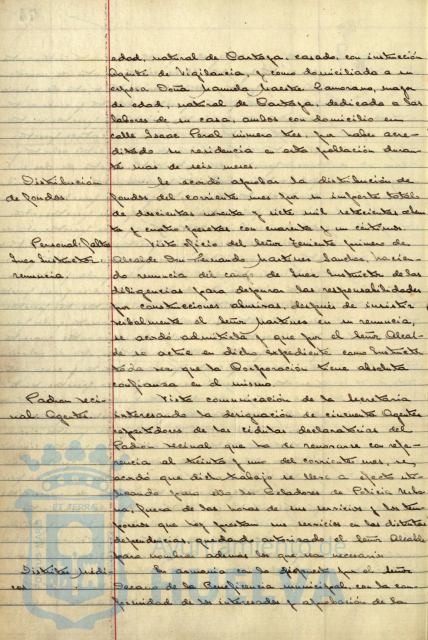 edad, natural de Cartaga. casado, con instrucción
Agente de Vigilancia, y como domiciliada a su
esposa Doña Manuela Maestre Zamorano, mayor
de edad, natural de Cartaga, dedicada a las
labores de su casa, ambos con domicilio en
calle Isaac Peral número tres, por haber acre-
ditado su residencia en esta población duran-
te mas de seis meses.
Distribución
de fondos.
Se acordó aprobar la distribución de
fondos del corriente mes por su importe total
de doscientas noventa y siete mil setecientas ochen-
ta y cuatro pesetas con cuarenta y un céntimos.
Personal:
Juez Instructor.
renuncia.
Visto oficio del Señor Teniente primero de
Alcalde Don Fernando Martínez Sánchez, hacien-
do renuncia del cargo de Juez Instructor de las
diligencias para depurar las responsabilidades
por construcciones abusivas, después de insistir
verbalmente el Señor Martínez en su renuncia,
se acordó admitirla y que por el Señor Alcal-
de se actúe en dicho expediente como Instructor
toda vez que la Corporación tiene absoluta
confianza en el mismo.
Padron veci-
nal: Agentes.
Vista comunicación de la Secretaría
interesando la designación de cincuenta Agentes
repartidores de las cédulas declaratorias del
Padron vecinal que ha de renovarse con refe-
rencia al treinta y uno del corriente mes, se
acordó que dicho trabajo se lleve a efecto uti-
lizando para ello los Celadores de Policía Urba-
na, fuera de las horas de sus servicios y los tem-
poreros que hoy prestan sus servicios en las distintas
dependencias, quedando autorizado el Señor Alcalde
para nombrar ademas los que sea necesario
Distritos médi-
cos.
En armonia con lo dispuesto por el Señor
Decano de la Beneficencia municipal, con la con-
formidad de los interesados y aprobación de la